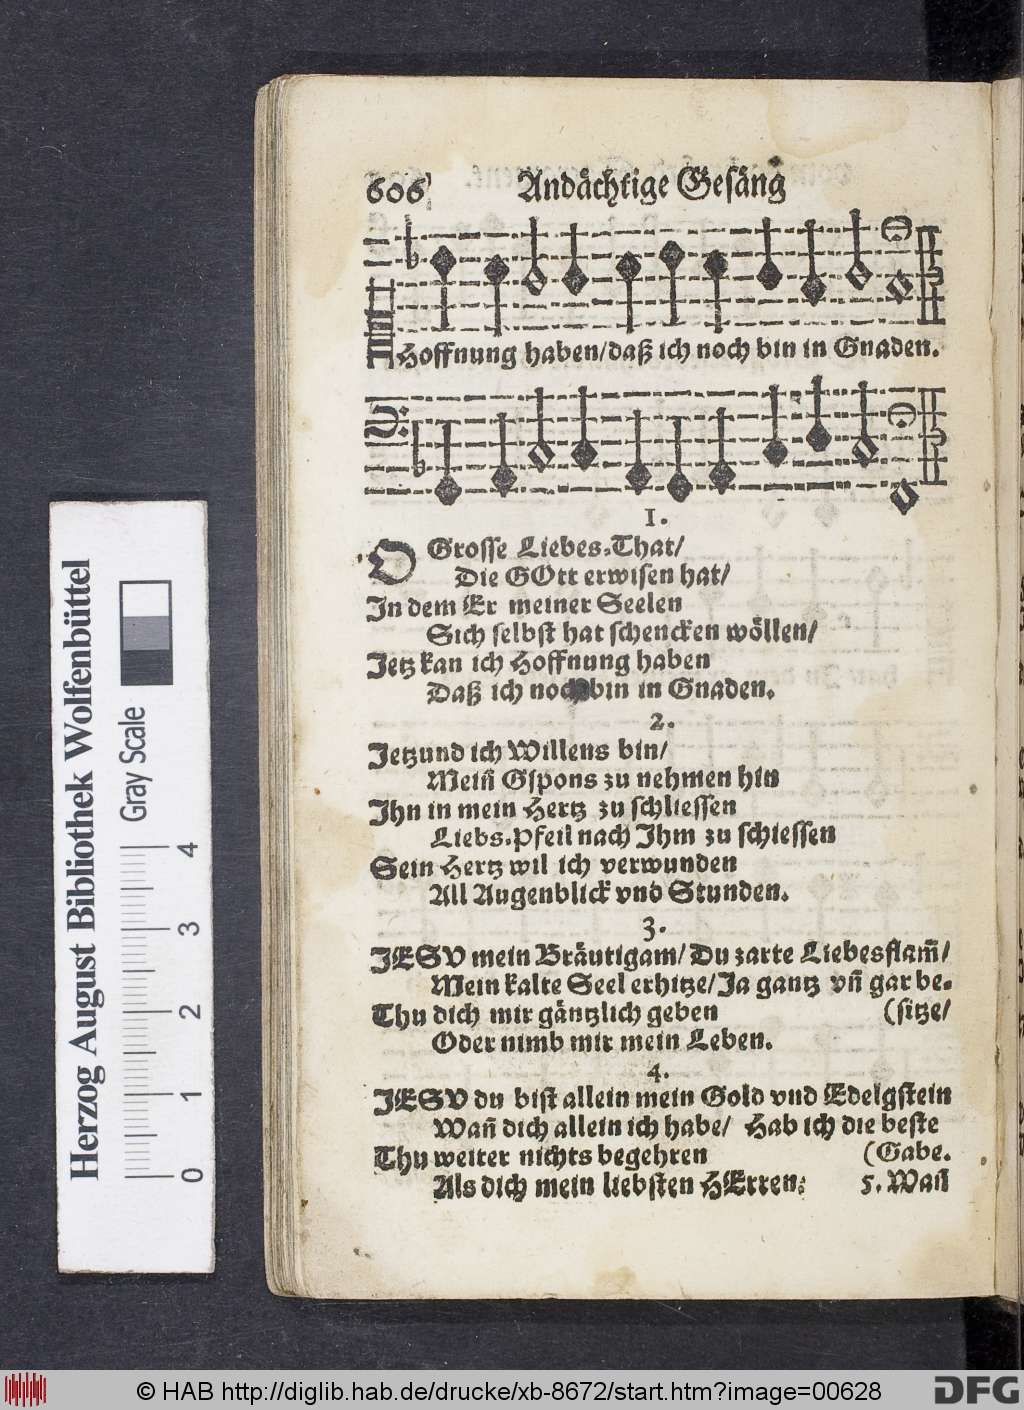 606
Andächtige Gesäng
Hoffnung haben/daß ich noch bin in Gnaden.
1.
O Grosse Liebes-That/
Die GOtt erwisen hat/
In dem Er meiner Seelen
Sich selbst hat schencken wöllen/
Jetz kan ich Hoffnung haben
Daß ich noch bin in Gnaden.
2.
Jetzund ich Willens bin/
Mein̄ Gspons zu nehmen hin
Ihn in mein Hertz zu schliessen
Liebs-Pfeil nach Ihm zu schiessen
Sein Hertz wil ich verwunden
All Augenblick vnd Stunden.
3.
JESV mein Bräutigam/ Du zarte Liebesflam̄/
Mein kalte Seel erhitze/Ja gantz vn̄ gar be-
Thu dich mir gäntzlich geben (sitze/
Oder nimb mir mein Leben.
4.
JESV du bist allein mein Gold vnd Edelgstein
Wan̄ dich allein ich habe/ Hab ich die beste
Thu weiter nichts begehren (Gabe.
Als dich mein liebsten HErren: 5. Wan̄
Herzog August Bibliothek Wolfenbüttel
Gray Scale
0 1 2 3 4
© HAB http://diglib.hab.de/drucke/xb-8672/start.htm?image=00628
DFG